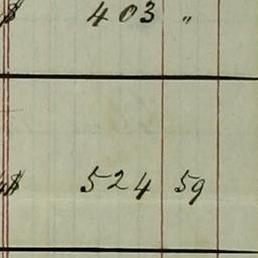 $ 403 "
$ 524 59